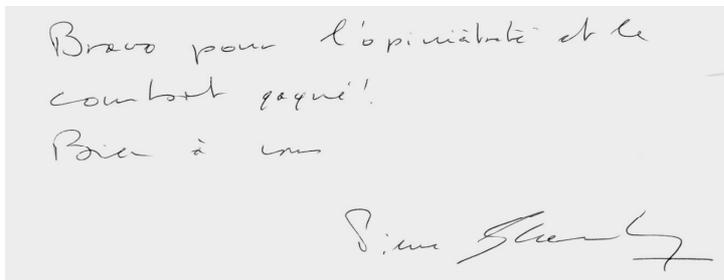 Bravo pour l'opiniâtreté et le
confort gagné !
Bien à vous
Pierre